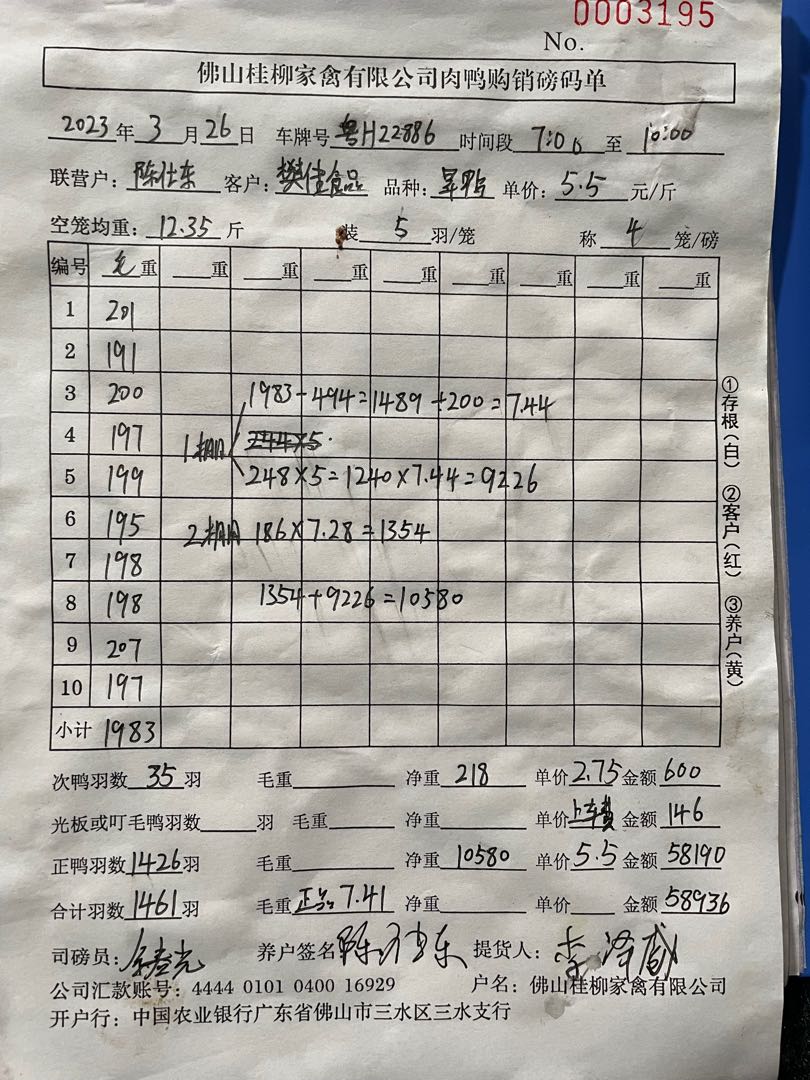 0003195
No.
佛山桂柳家禽有限公司肉鸭购销磅码单
2023年3月26日 车牌号粤H22886 时间段7:00至10:00
联营户:陈仕东 客户:樊佳食品 品种: 单价:5.5元/斤
空笼均重:12.35斤 装5羽/笼 称4笼/磅
编号 毛重 重 重 重 重 重 重 重 重
1 201
2 191
3 200 1983-494=1489÷200=7.44
4 197 1棚 244×5.
5 199 248×5=1240×7.44=9226
6 195 2棚 186×7.28=1354
7 198
8 198 1354+9226=10580
9 207
10 197
小计 1983
①存根(白) ②客户(红) ③养户(黄)
次鸭羽数35羽 毛重 净重218 单价2.75金额600
光板或叮毛鸭羽数 羽 毛重 净重 单价上车费金额146
正鸭羽数1426羽 毛重 净重10580 单价5.5金额58190
合计羽数1461羽 毛重正品7.41 净重 单价 金额58936
司磅员: 养户签名陈仕东 提货人:李
公司汇款账号:4444 0101 0400 16929 户名:佛山桂柳家禽有限公司
开户行:中国农业银行广东省佛山市三水区三水支行